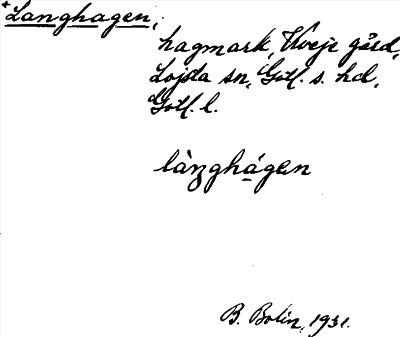 *Langhagen,
hagmark, Kveje gård,
Lojsta sn, Gotl. s. hd,
Gotl. l.
làŋghágen
B. Bolin, 1931.